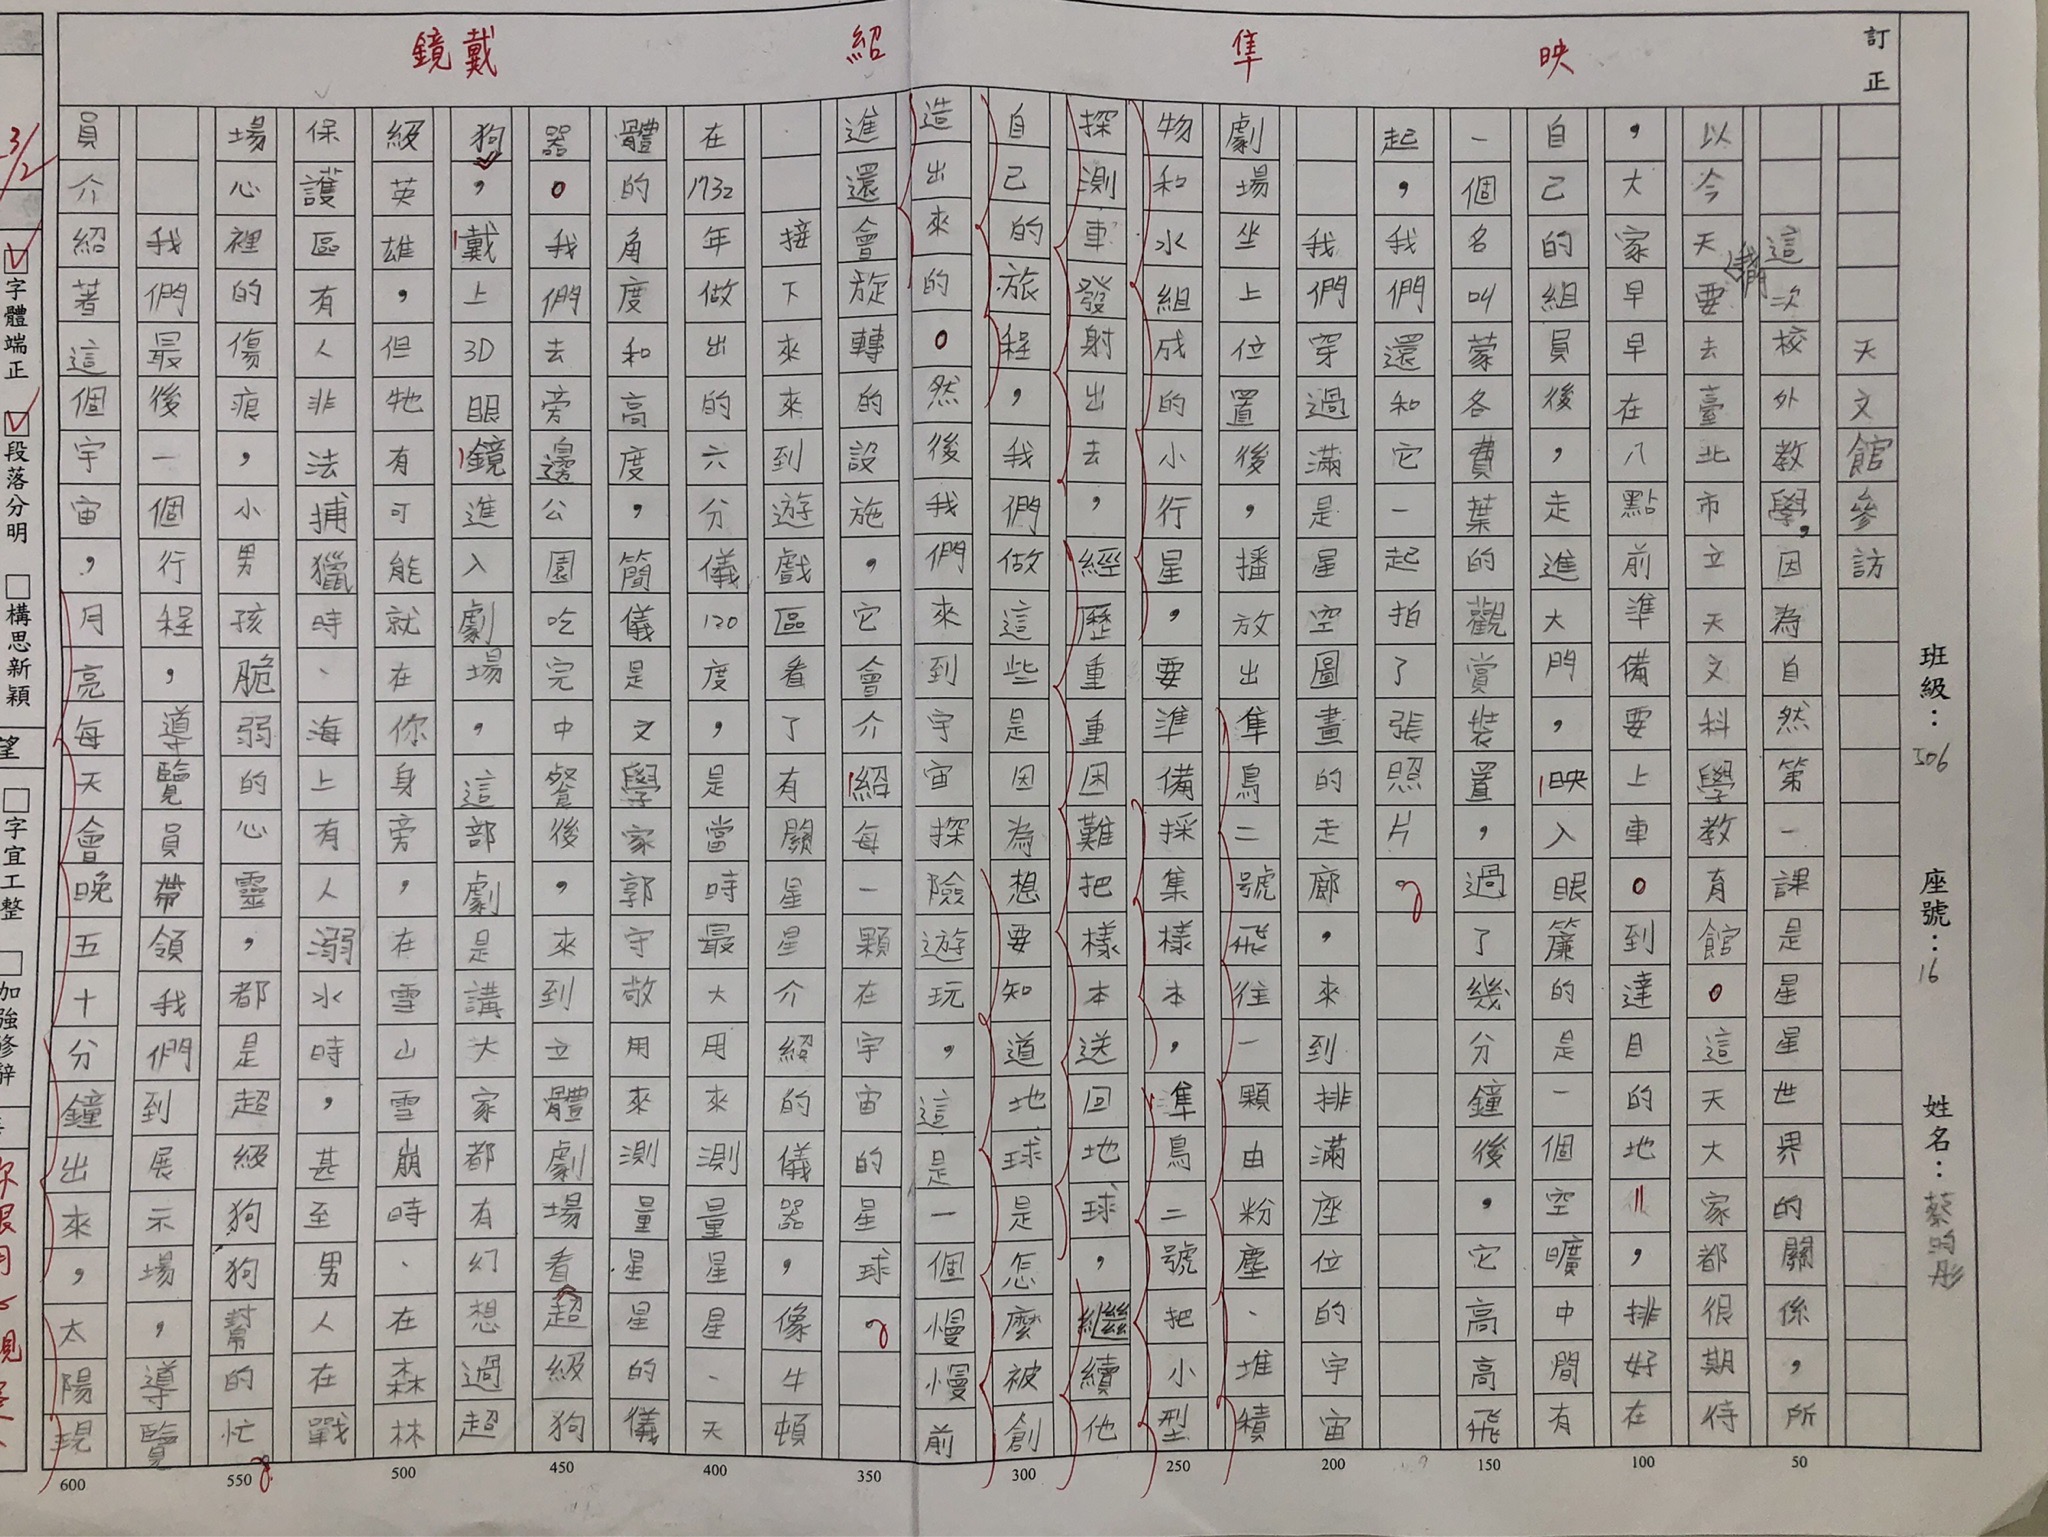 訂正
映
隼
紹
戴鏡
班級：506 座號：16 姓名：蔡昀彤
天文館參訪
這次校外教學，因為自然第一課是星星世界的關係，所
以今天我們要去臺北市立天文科學教育館。這天大家都很期待
，大家早早在八點前準備要上車。到達目的地，排好在
自己的組員後，走進大門，映入眼簾的是一個空曠中間有
一個名叫蒙各費葉的觀賞裝置，過了幾分鐘後，它高高飛
起，我們還和它一起拍了張照片。
我們穿過滿是星空圖畫的走廊，來到排滿座位的宇宙
劇場坐上位置後，播放出隼鳥二號飛往一顆由粉塵、堆積
物和水組成的小行星，要準備採集樣本，隼鳥二號把小型
探測車發射出去，經歷重重困難把樣本送回地球，繼續他
自己的旅程，我們做這些是因為想要知道地球是怎麼被創
造出來的。然後我們來到宇宙探險遊玩，這是一個慢慢前
進還會旋轉的設施，它會介紹每一顆在宇宙的星球。
接下來來到遊戲區看了有關星星介紹的儀器，像牛頓
在1732年做出的六分儀120度，是當時最大用來測量星星、天
體的角度和高度，簡儀是天文學家郭守敬用來測量星星的儀
器。我們去旁邊公園吃完中餐後，來到立體劇場看超級狗
狗，戴上3D眼鏡進入劇場，這部劇是講大家都有幻想過超
級英雄，但牠有可能就在你身旁，在雪山雪崩時、在森林
保護區有人非法捕獵時、海上有人溺水時，甚至男人在戰
場心裡的傷痕，小男孩脆弱的心靈，都是超級狗狗幫的忙。
我們最後一個行程，導覽員帶領我們到展示場，導覽
員介紹著這個宇宙，月亮每天會晚五十分鐘出來，太陽現
50
100
150
200
250
300
350
400
450
500
550
600
3/2
字體端正
段落分明
構思新穎
字宜工整
加強修辭